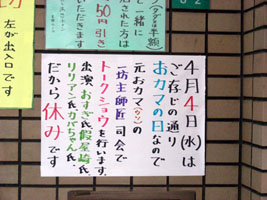 4月4日(水)は
ご存じの通り
おカマの日なので
元おカマ(?)の
一坊主師匠司会で
トークショウを行います。
出演、おすぎ氏、假屋崎氏、
リリアン氏、カバちゃん氏
だから休みです
と一緒に
された方は
50円引き
いただきます
左が出入口です